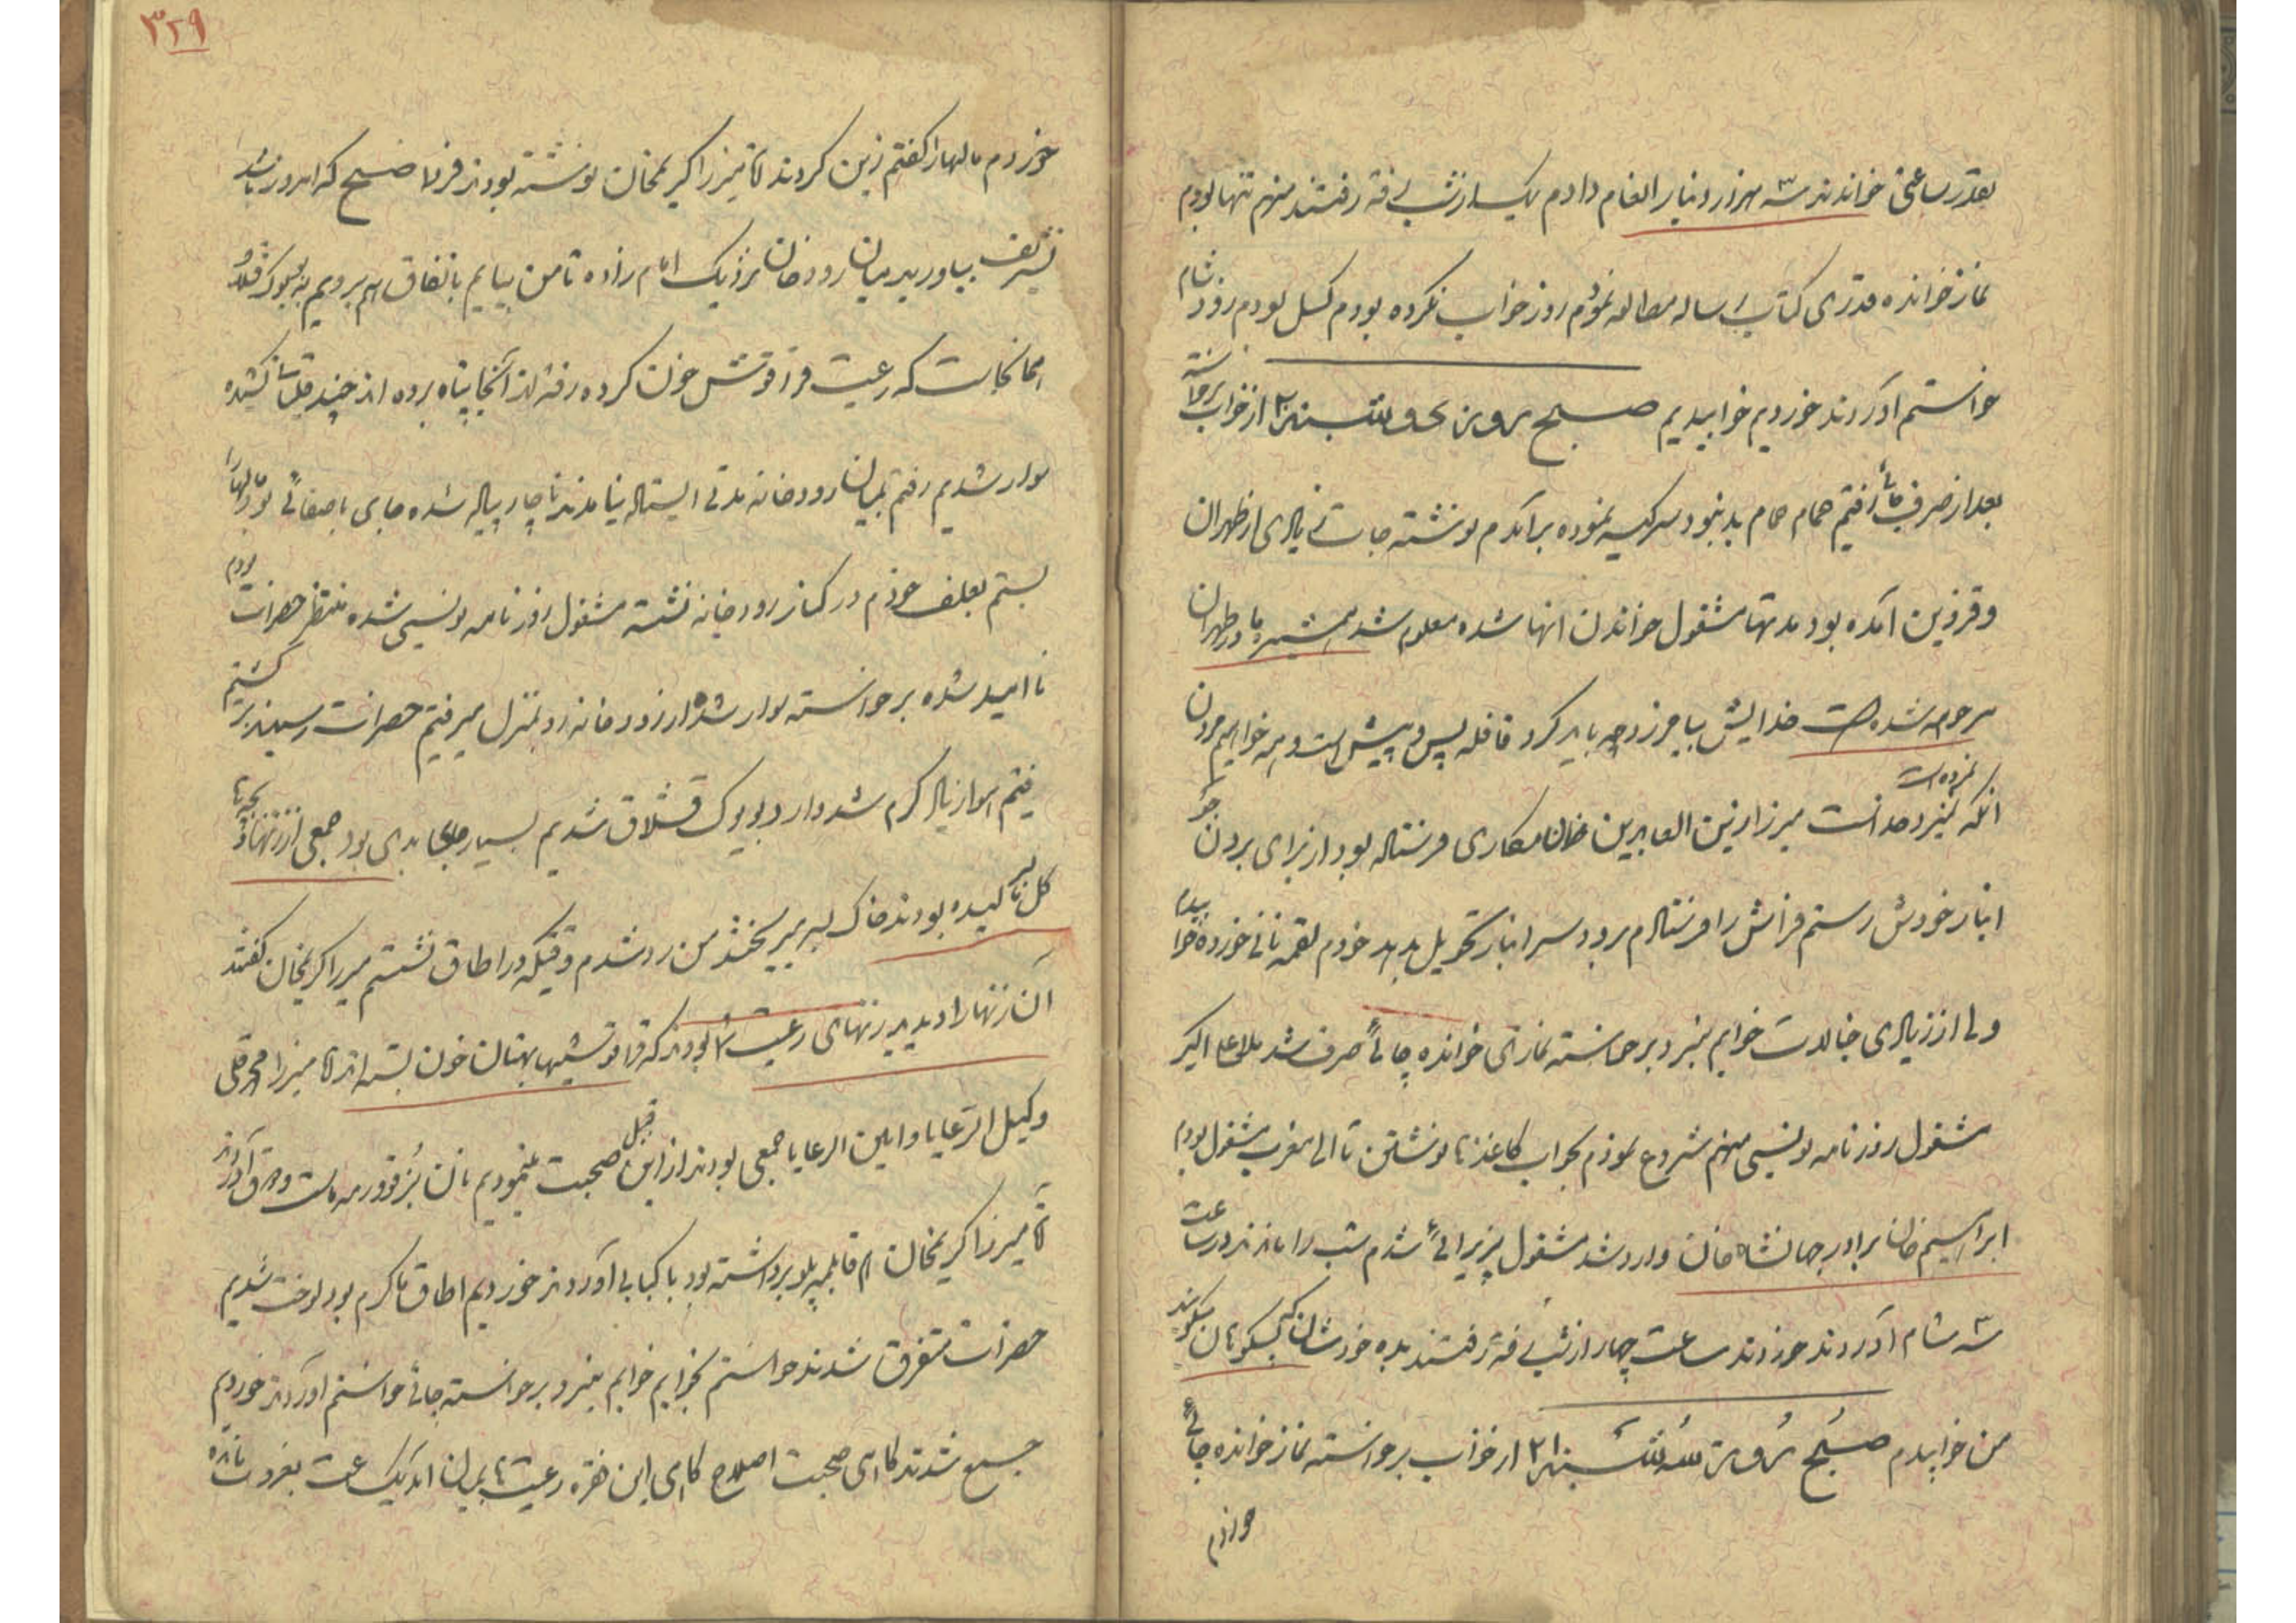 بقدر ساعتی خواندند سه هزار دینار انعام دادم یکساعت از شب رفته رفتند منهم تنها بودم
نماز خوانده قدری کتاب رساله مطالعه نمودم روز خواب نکرده بودم کسل بودم زود شام
خواستم آوردند خوردیم خوابیدیم صبح روز شنبه ۲۰ از خواب برخاسته
بعد از صرف چائی رفتم حمام حمام بد نبود سر کیسه نموده برآمدم نوشته جات زیادی از طهران
و قزوین آمده بود مدتها مشغول خواندن انها شده معلوم شد همشیره ما در طهران
مرحومه شده است خدایش بیامرزد چه باید کرد قافله پس و پیش است همه خواهیم مردن
آنکه نمرده است و نمیرد خداست میرزا زین العابدین خان مکاری فرستاده بود از برای بردن جو
انبار خودش رستم فراش را فرستادم برود سر انبار تحویل بدهد خودم لقمه نانی خورده خوابیدم
ولی از زیادی خیالات خوابم نبرد برخاسته نمازی خوانده چائی صرف شد ملا علی اکبر
مشغول روزنامه نویسی منهم شروع نمودم بجواب کاغذ ها نوشتن تا الی مغرب مشغول بودم
ابراهیم خان برادر جهانشاه خان وارد شد مشغول پذیرائی شدم شب را ماندند در ساعت
سه شام آوردند خوردند ساعت چهار از شب رفته رفتند بده خودشان که میگویند
من خوابیدم صبح روز سه شنبه ۲۱ از خواب برخاسته نماز خوانده چائی
خوردم
۳۲۹
خوردم مالها را گفتم زین کردند آقا میرزا کریمخان نوشته بودند فردا صبح که امروز باشد
تشریف بیاورید میان رودخان نزدیک امام زاده تا من بیایم باتفاق هم برویم به بیوک قشلاق
همانجاست که رعیت قزاقوتش خون کرده رفته اند آنجا پناه برده اند چند قتلی کشیده
سوار شدیم رفتم بمیان رودخانه مدتی ایستاده نیامدند ناچار پیاده شده جای باصفائی بود مالها را
بستم بعلف خودم در کنار رودخانه نشسته مشغول روزنامه نویسی شده منتظر حضرات بودم
ناامید شده برخواسته سوار شده از رودخانه رو بمنزل میرفتیم حضرات رسیدند برگشتیم
رفتم هوا زیاد گرم شد وارد بیوک قشلاق شدیم بسیار جای بدی بود جمعی از زنها و بچه ها
گل بسر مالیده بودند خاک بسر میریختند من رد شدم وقتیکه در اطاق نشستم میرزا کریمخان گفتند
آن زنها را دیدید زنهای رعیت بودند که قزاقوتشیها بهتان خون بسته اند آقا میرزا محمد قلی
وکیل الرعایا و امین الرعایا جمعی بودند از این قبیل صحبت مینمودیم نان پنیر قورمه ماست و عرق آوردند
آقا میرزا کریمخان هم قابلمه پلو برداشته بود با کبابی آوردند خوردیم اطاق ما گرم بود لخت شدیم
حضرات متفرق شدند خواستم بخوابم خوابم نبرد برخواسته چائی خواستم آوردند خوردیم
جمع شدند آقایان صحبت اصلاح کار این فقره رعیت بمیان آمد یکساعت بغروب مانده